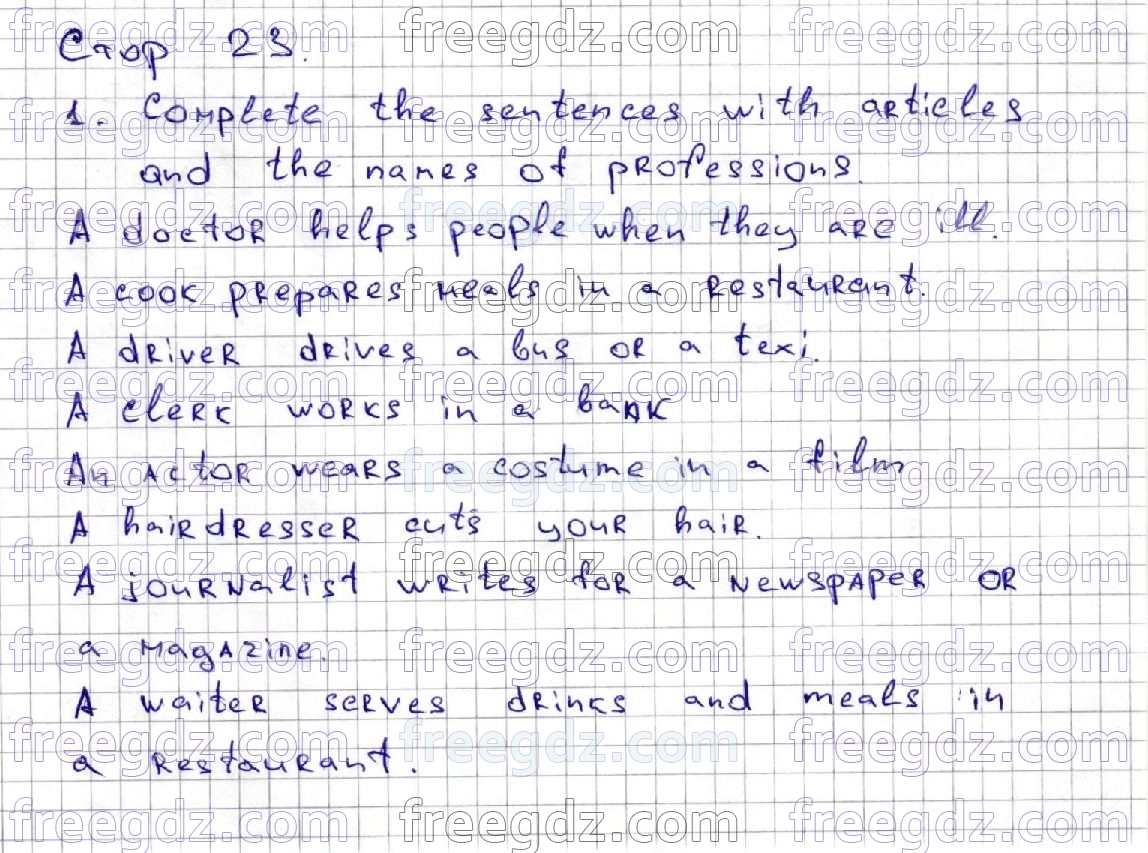 Стор 23.
1. Complete the sentences with articles
and the names of professions.
A doctor helps people when they are ill.
A cook prepares meals in a restaurant.
A driver drives a bus or a texi.
A clerk works in a bank
An actor wears a costume in a film
A hairdresser cuts your hair.
A journalist writes for a newspaper or
a magazine.
A waiter serves drinks and meals in
a restaurant.
freegdz.com